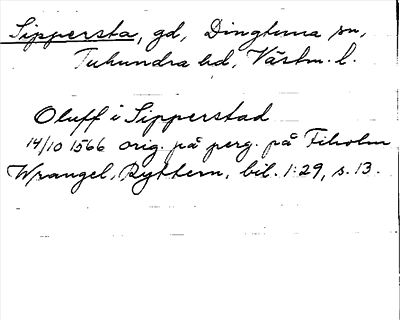 Sippersta, gd, Dingtuna sn,
Tuhundra hd, Västm. l.
Oluff i Sipperstad
14/10 1566 orig. på perg. på Fiholm
Wrangel, Ryttern, bil. 1:29, s. 13.